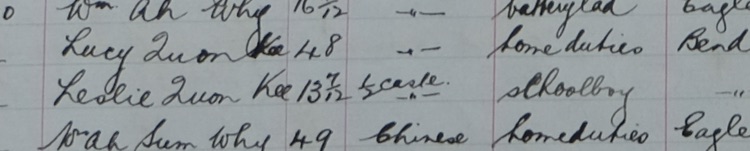 0 Wm Ah Why 16/12 -"- battery lad Eagle
Lucy Quon Kee 48 -"- home duties Bend
Leslie Quon Kee 13 7/12 ½ caste. -"- schoolboy -"-
Ah Sum Why 49 Chinese home duties Eagle